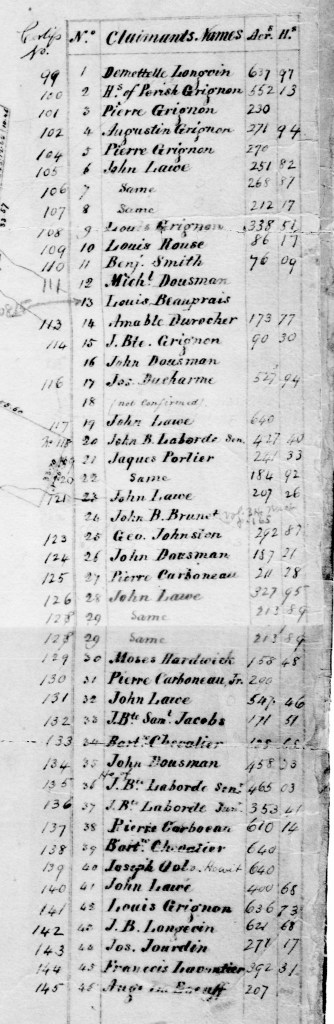 Certifs No. Nº Claimants Names Acrs Hs
99 1 Demottelle Longvin 637 97
100 2 Hs of Perish Grignon 552 13
101 3 Pierre Grignon 230
102 4 Augustin Grignon 271 94
104 5 Pierre Grignon 270
105 6 John Lawe 251 82
106 7 Same 268 87
107 8 Same 212 17
108 9 Louis Grignon 338 51
109 10 Louis Rouse 86 17
110 11 Benj. Smith 76 09
111 12 Michl Dousman
13 Louis Beauprais
113 14 Amable Durocher 173 77
114 15 J. Bte. Grignon 90 30
16 John Dousman
116 17 Jos. Ducharme 327 94
18 (not Confirmed)
117 19 John Lawe 640
118 20 John B. Laborde Sen. 427 40
21 Jaques Porlier 241 33
22 Same 184 92
121 23 John Lawe 207 26
24 John B. Brunet
123 25 Geo. Johnston 292 87
124 26 John Dousman 137 21
125 27 Pierre Carboneau 211 28
126 28 John Lawe 327 95
128 29 Same 213 89
128 29 Same 213 89
129 30 Moses Hardwick 158 48
130 31 Pierre Carboneau Jr. 200
131 32 John Lawe 547 46
132 33 J. Bte Saml Jacobs 171 51
133 34 Bartw Chevalier
134 35 John Dousman 458 33
135 36 J. Bte Laborde Senr 465 03
136 37 J. Bte Laborde Junr 353 41
137 38 Pierre Carboeau 610 14
138 39 Bartw Chevalier 640
139 40 Joseph 640
140 41 John Lawe 400 68
141 42 Louis Grignon 636 73
142 43 J. B. Longevin 621 68
143 44 Jos. Jourdin 271 17
144 45 Francois Laventier 392 31
145 46 207